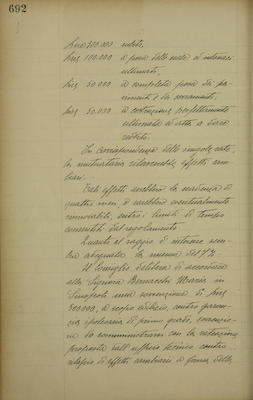 692
fino 300.000 subito,
fino 100.000 a posa delle scale ed intonaci
ultimati,
fino 50.000 a completa posa dei pa-
vimenti e dei serramenti,
fino 50.000 a costruzione perfettamente
ultimata ed atta a dare
reddito.
In corrispondenza delle singole rate
la mutuataria rilascerebbe effetti cam-
biari.
Tali effetti avrebbero la scadenza di
quattro mesi, e sarebbero eventualmente
rinnovabili, entro i limiti di tempo
consentiti dal regolamento.
Quanto al saggio d'interesse sem-
bra adeguata la misura del 7%.
Il Consiglio delibera di accordare
alla Signora Bernacchi Maria in
una sovvenzione di fino
a scopo edilizio, contro garan-
zia ipotecaria di primo grado, sovvenzione
da somministrarsi con le
proposte dall'ufficio tecnico contro
rilascio di effetti cambiari a firma della